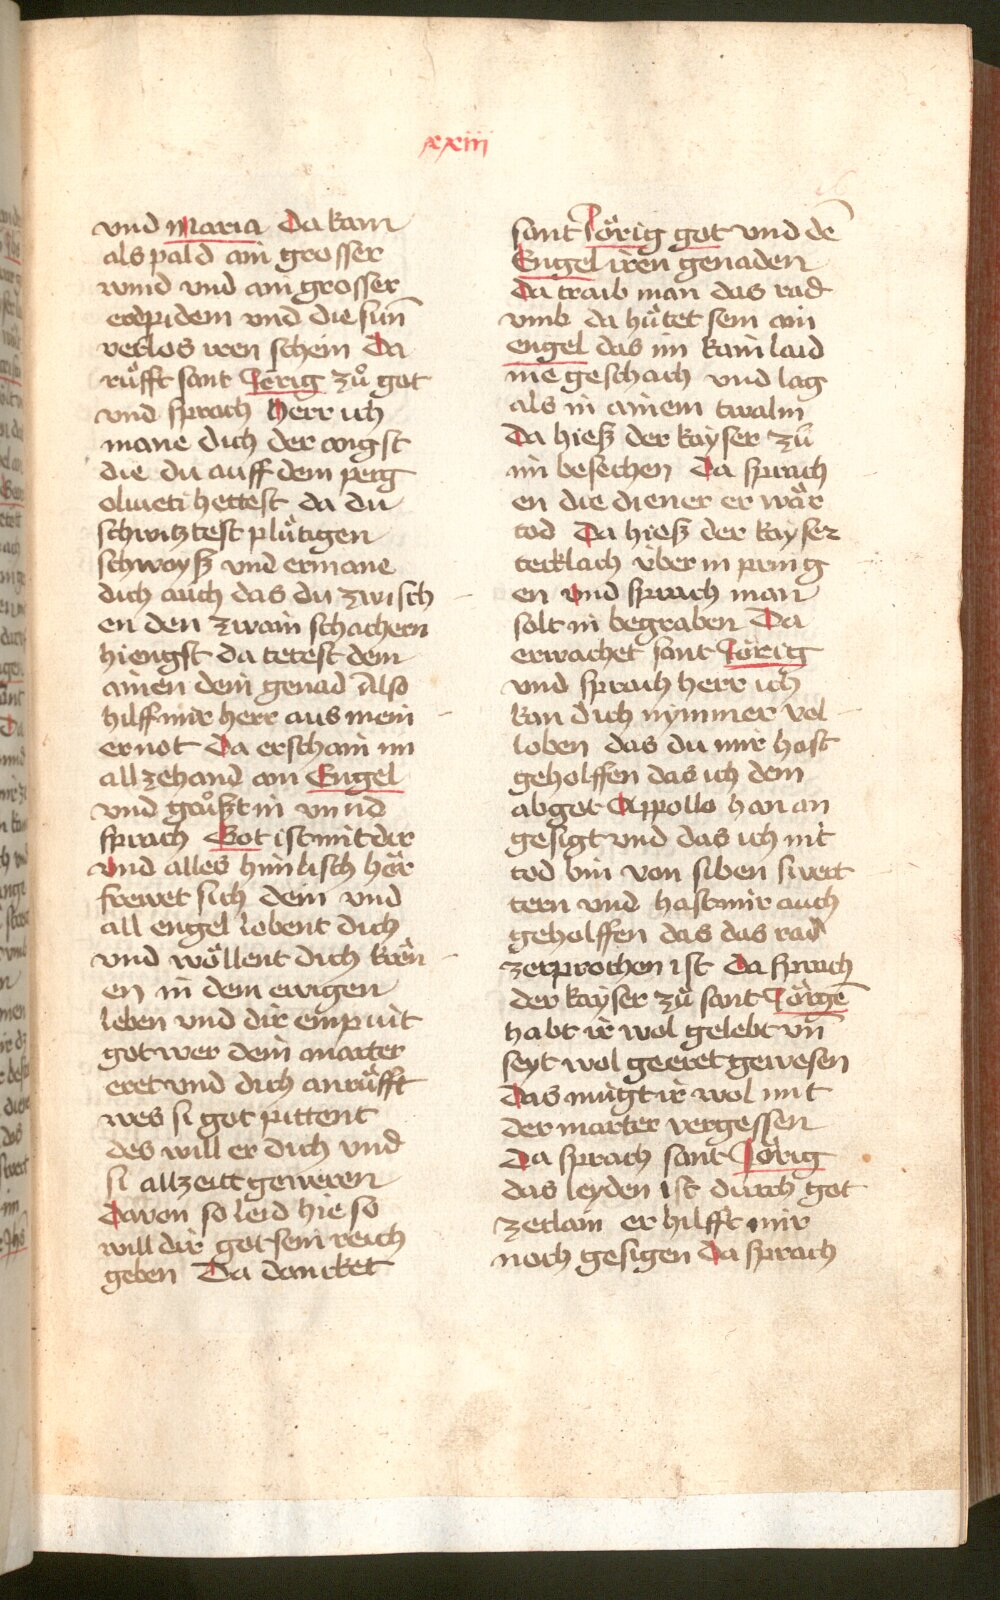 xxiii
vnd Maria Da kam
als pald ain grosser
wind vnd ain grosser
erdpidem vnd die sun̄
verlos iren schein Da
růfft sant Jörig zů got
vnd sprach Herr ich
mane dich der angst
die du auff dem perg
oliueti hettest da du
schwitztest plůtigen
schwayß vnd ermane
dich auch das du zwisch
en den zwain schachern
hiengst da tetest dem
ainen dein genad Also
hilff mir herr aus mein
er not Da erschain im
allzehand ain Engel
vnd grůßt in vnnd
sprach Got ist mit dir
vnd alles himlisch här
frewet sich dein vnd
all engel lobent dich
vnd wöllent dich krön
en in dem ewigen
leben vnd dir empuit
got wer dein marter
eret vnd dich anrůfft
wes si got pittent
des will er dich vnd
si allzeitt geweren
Davon so leid hie so
will dir got sein reich
geben Da dancket
sant Jörig got vnd dē
Engel iren genaden
Da traib man das rad
vmb da hůtet sein ain
engel das im kain laid
nie geschach vnd lag
als in ainem twalm
Da hieß der kayser zů
im besechen Da sprach
en die diener er wär
tod Da hieß der kayser
tecklach über in pring
en vnd sprach man
solt in begraben Da
erwachet sant Jörig
vnd sprach herr ich
kan dich nymmer vol
loben das du mir hast
geholffen das ich dem
abgot Appollo han an
gesigt vnd das ich nit
tod bin von siben swert
tern vnd hast mir auch
geholffen das das rad
zerprochen ist Da sprach
der kayser zů sant Jörgē
habt ir wol gelebt vn̄
seyt wol geeret gewesen
Das mügt ir wol mit
der marter vergessen
Da sprach sant Jörig
das leyden ist durch got
zerlain er hilfft mir
noch gesigen Da sprach